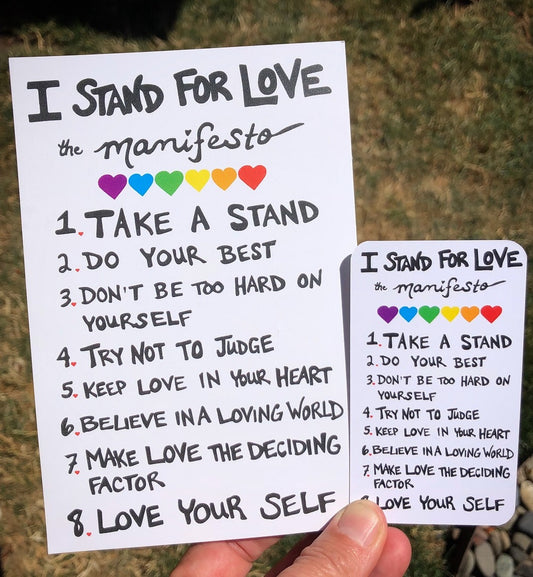 I STAND FOR LOVE
the manifesto
1. TAKE A STAND
2. DO YOUR BEST
3. DON'T BE TOO HARD ON
YOURSELF
4. TRY NOT TO JUDGE
5. KEEP LOVE IN YOUR HEART
6. BELIEVE IN A LOVING WORLD
7. MAKE LOVE THE DECIDING
FACTOR
8. LOVE YOUR SELF
I STAND FOR LOVE
the manifesto
1. TAKE A STAND
2. DO YOUR BEST
3. DON'T BE TOO HARD ON
YOURSELF
4. TRY NOT TO JUDGE
5. KEEP LOVE IN YOUR HEART
6. BELIEVE IN A LOVING WORLD
7. MAKE LOVE THE DECIDING
FACTOR
8. LOVE YOUR SELF